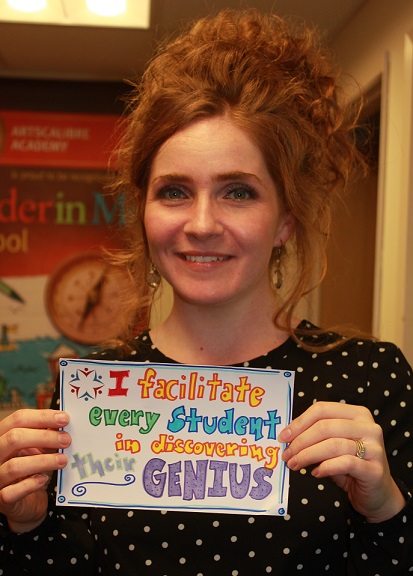 ARTSCALIBRE
ACADEMY
is proud to be recognized
der in M
ool
I facilitate
every Student
in discovering
their GENIUS